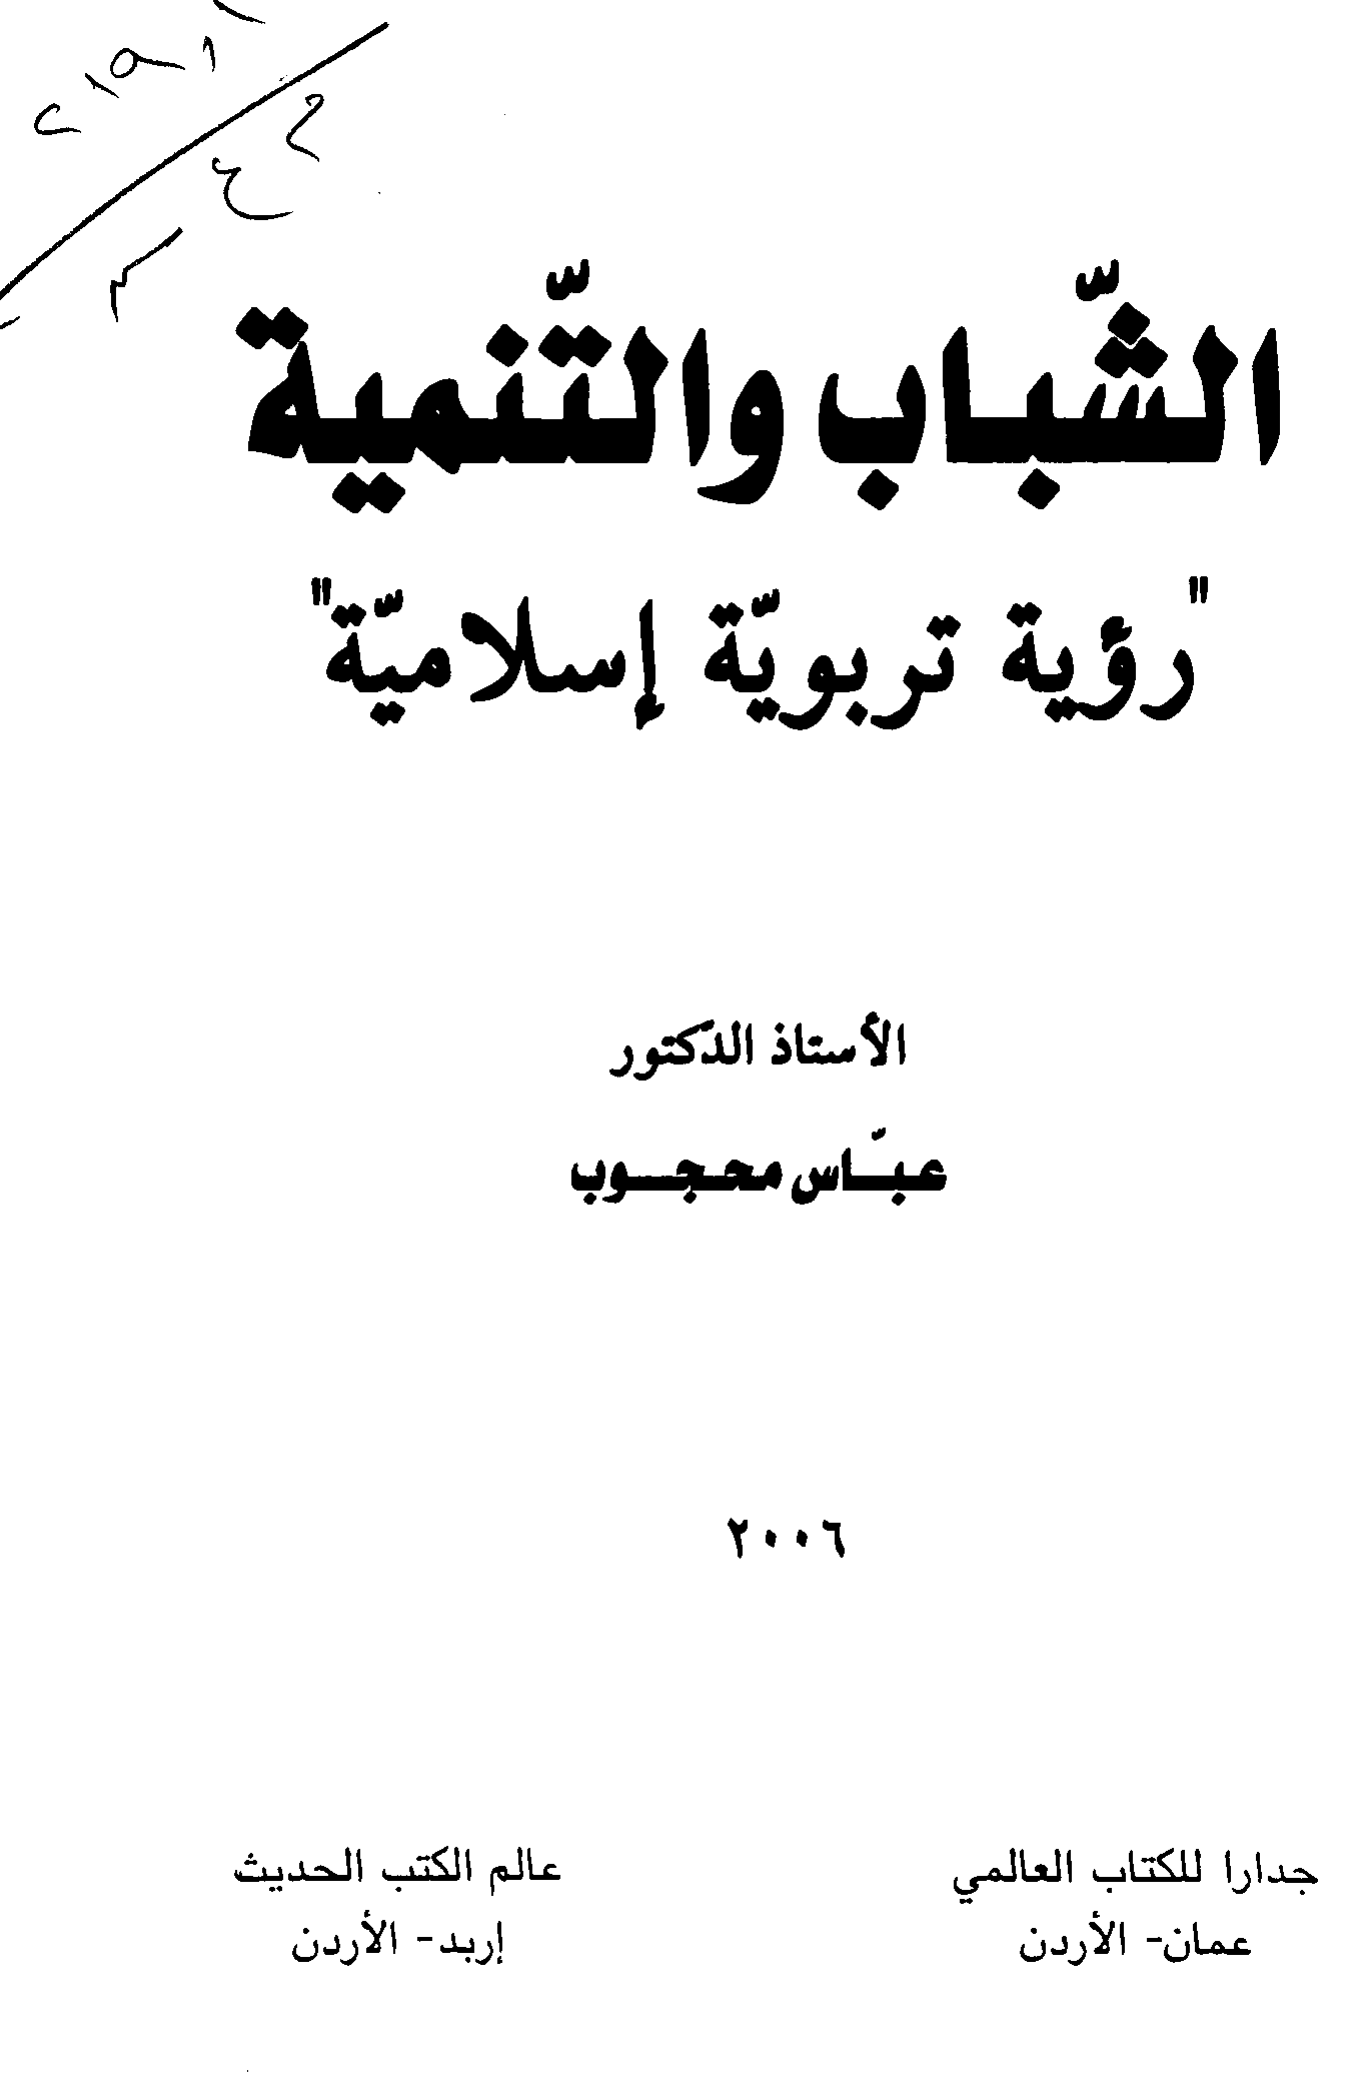 الشّباب والتّنمية
"رؤية تربويّة إسلاميّة"
الأستاذ الدكتور
عبّاس محجوب
٢٠٠٦
جدارا للكتاب العالمي
عمان- الأردن
عالم الكتب الحديث
إربد- الأردن